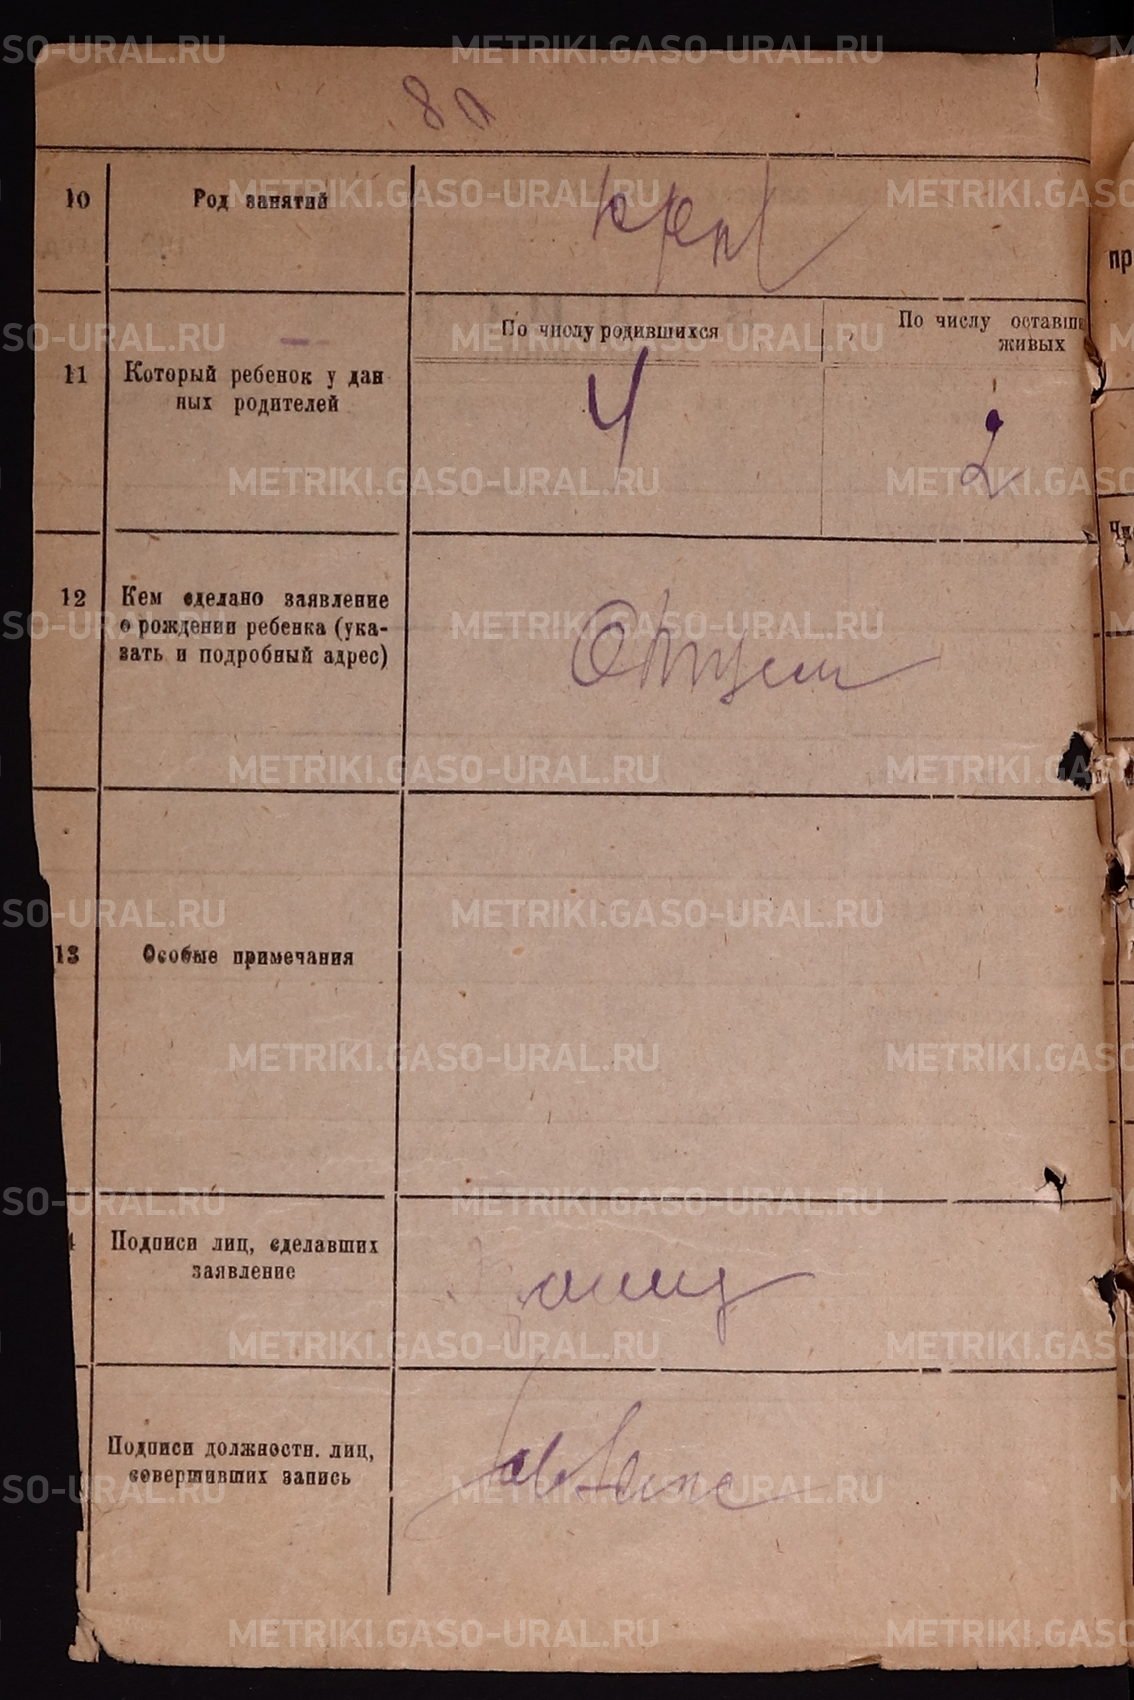 8а
10 Род занятий
11 Который ребенок у дан
ных родителей
По числу родившихся
По числу оставши
живых
4
2
12 Кем сделано заявление
о рождении ребенка (ука-
зать и подробный адрес)
Отцем
13 Особые примечания
Подписи лиц, сделавших
заявление
Подписи должностн. лиц,
совершивших запись
пр
METRIKI.GASO-URAL.RU